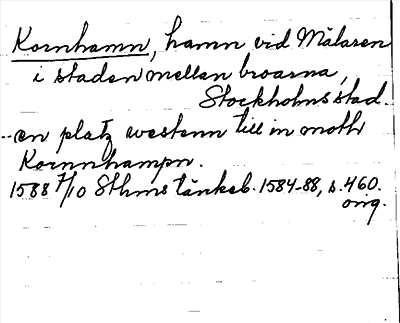 Kornhamn, hamn vid Mälaren
i staden mellan broarna,
Stockholms stad.
..en platz westenn till in moth
Kornnhampn.
1588 7/10 Sthms tänkeb. 1584-88, s. 460.
orig.